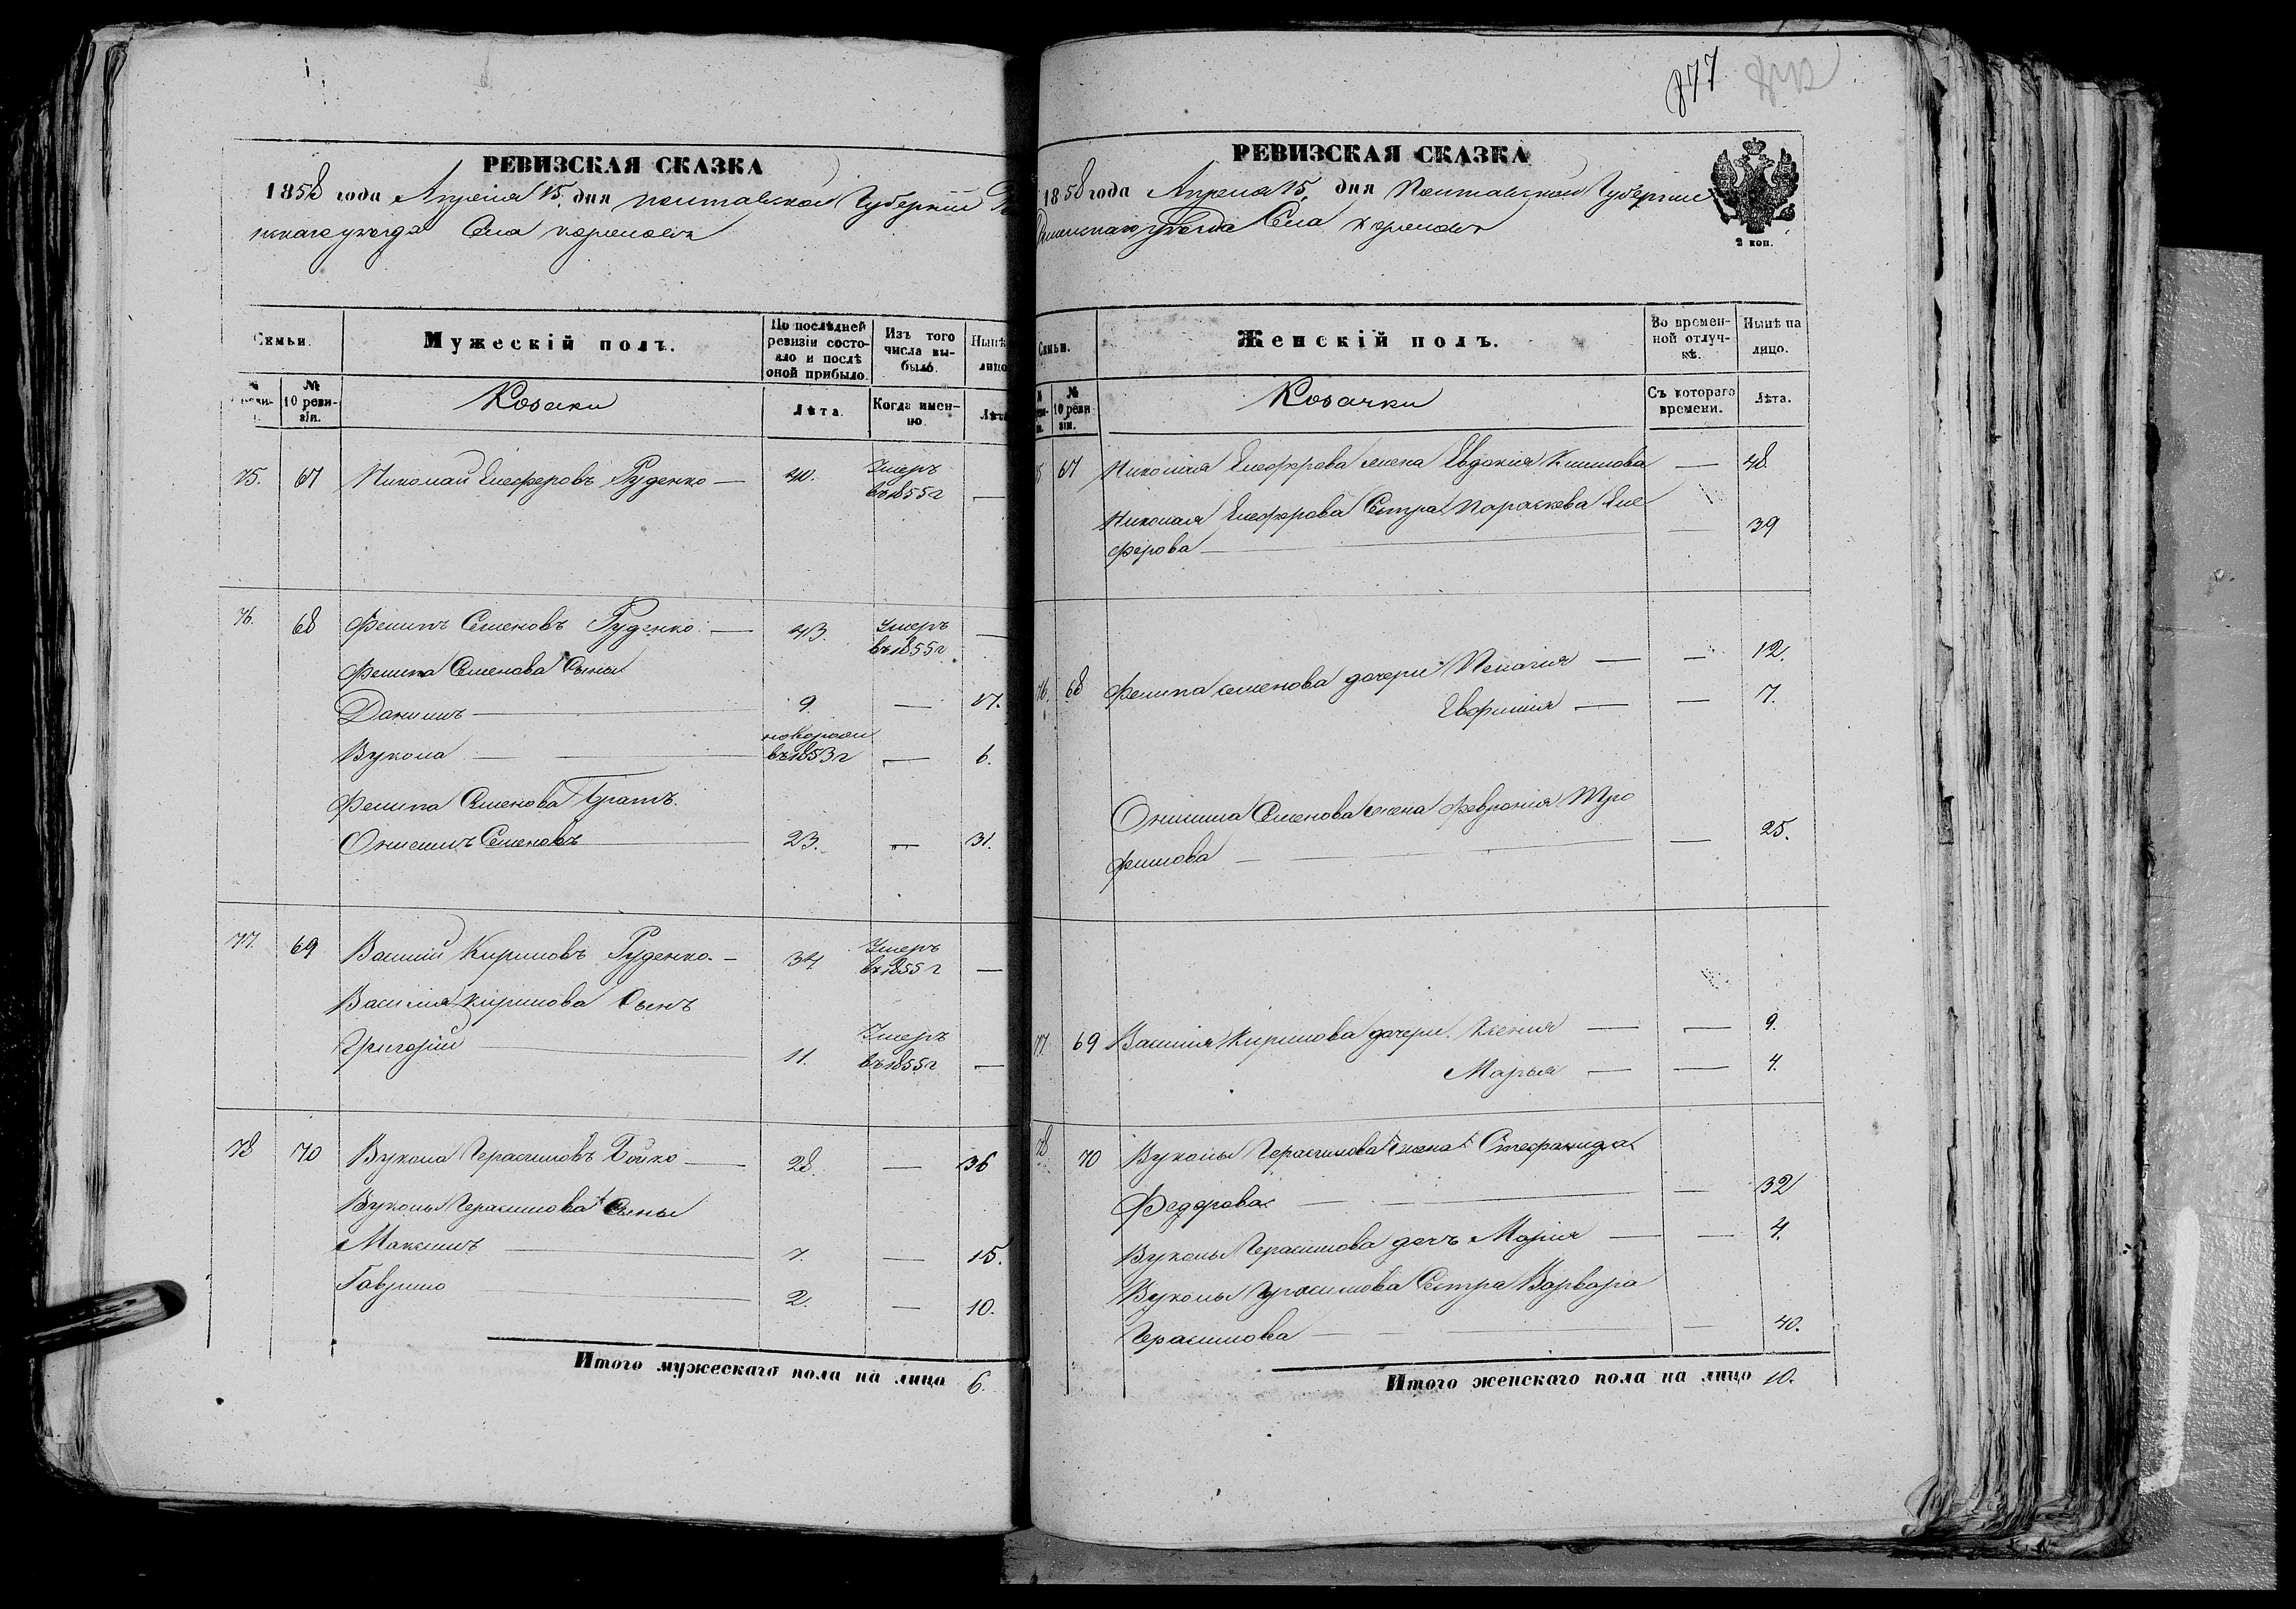 РЕВИЗСКАЯ СКАЗКА
1858 года Апреля 15 дня Полтавской Губерніи
скаго уезда Села
Семьи.
Мужескій полъ.
По послѣдней ревизіи состояло и послѣ оной прибыло.
Изъ того числа выбыло.
Нынѣ лицо
№ 10 ревизіи.
Козаки
Лѣта.
Когда именно.
Лѣта
75. 67 Николай Елеферовъ Руденко — 40. Умеръ въ 1855 г —
76. 68 Филипъ Семеновъ Руденко — 43. Умеръ въ 1855 г —
Филипа Семенова Сыны
Данилъ — 9. — 17.
Вукола — новорожд въ 1853 г — 6.
Филипа Семенова Братъ.
Онисимъ Семеновъ 23. — 31.
77. 69 Василій Кириловъ Руденко — 34 Умеръ въ 1855 г —
Василия Кирилова Сынъ
Григорій — 11. Умеръ въ 1855 г —
78 70 Вукола Герасимовъ Бойко — 28. — 36
Вуколы Герасимова Сыны
Максимъ — 7. — 15.
Гаврило 2. — 10.
Итого мужескаго пола на лицо 6.
877
РЕВИЗСКАЯ СКАЗКА
1858 года Апреля 15 дня Полтавской Губерніи
Роменскаго уезда Села
2 коп.
Семьи.
Женскій полъ.
Во временной отлучкѣ.
Нынѣ на лицо.
№ 10 ревизіи.
Козачки
Съ котораго времени.
Лѣта.
67 Николая Елеферова жена Евдокия Климова — 48.
Николая Елеферова Сестра Параскева Елеферова — 39
76. 68 Филипа Семенова дочери Пелагия — — 12.
Евфимия — — 7.
Онисима Семенова жена Феврония Трофимова — — 25.
77. 69 Василия Кирилова дочери. Ксения — — 9.
Марья — — 4.
78 70 Вуколы Герасимова жена Стефанида
Федорова — — 32
Вуколы Герасимова дочъ Мария — — 4.
Вуколы Герасимова Сестра Варвара
Герасимова — — 40.
Итого женскаго пола на лицо 10.